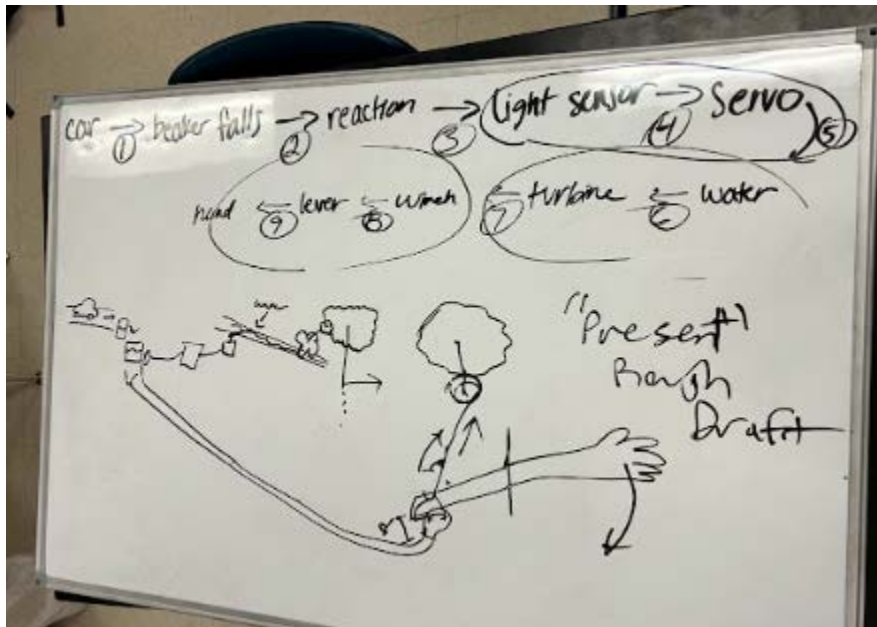 car → beaker falls → reaction → light sensor → servo
① ② ③ ④ ⑤
hand ← lever ← winch ← turbine ← water
⑨ ⑧ ⑦ ⑥
"Present"
Rough
Draft